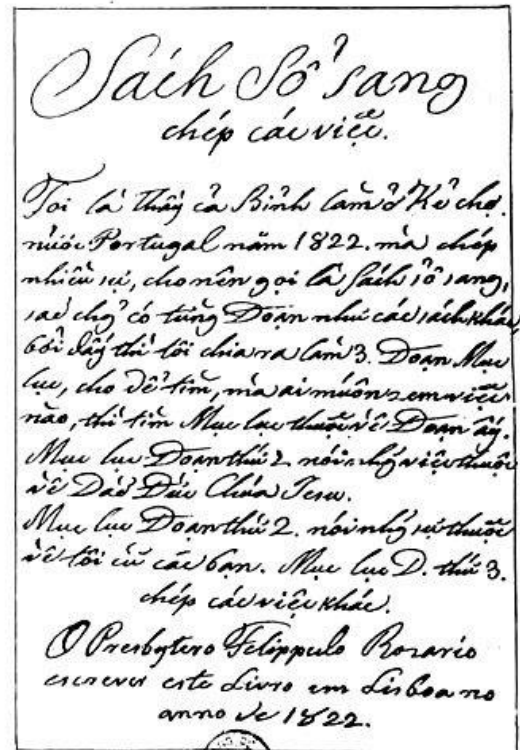 Sách Sổ sang
chép các việc.
Tôi là thầy cả Bỉnh làm ở Kẻ chợ.
nước Portugal năm 1822. mà chép
nhiều sự, cho nên gọi là Sách sổ sang,
có từng Doạn như các sách khác,
bởi đấy thì tôi chia ra làm 3. Doạn Mục
lục, cho dễ tìm, mà ai muốn xem việc
nào, thì tìm Mục lục thuộc về Doạn ấy.
Mục lục Doạn thứ nói việc thuộc
về Dức Chúa Jesu.
Mục lục Doạn thứ 2. nói sự thuộc
về tôi các bạn. Mục lục D. thứ 3.
chép các việc khác.
O Presbytero Felippe do Rosario
escrever este Livro em Lisboa no
anno de 1822.